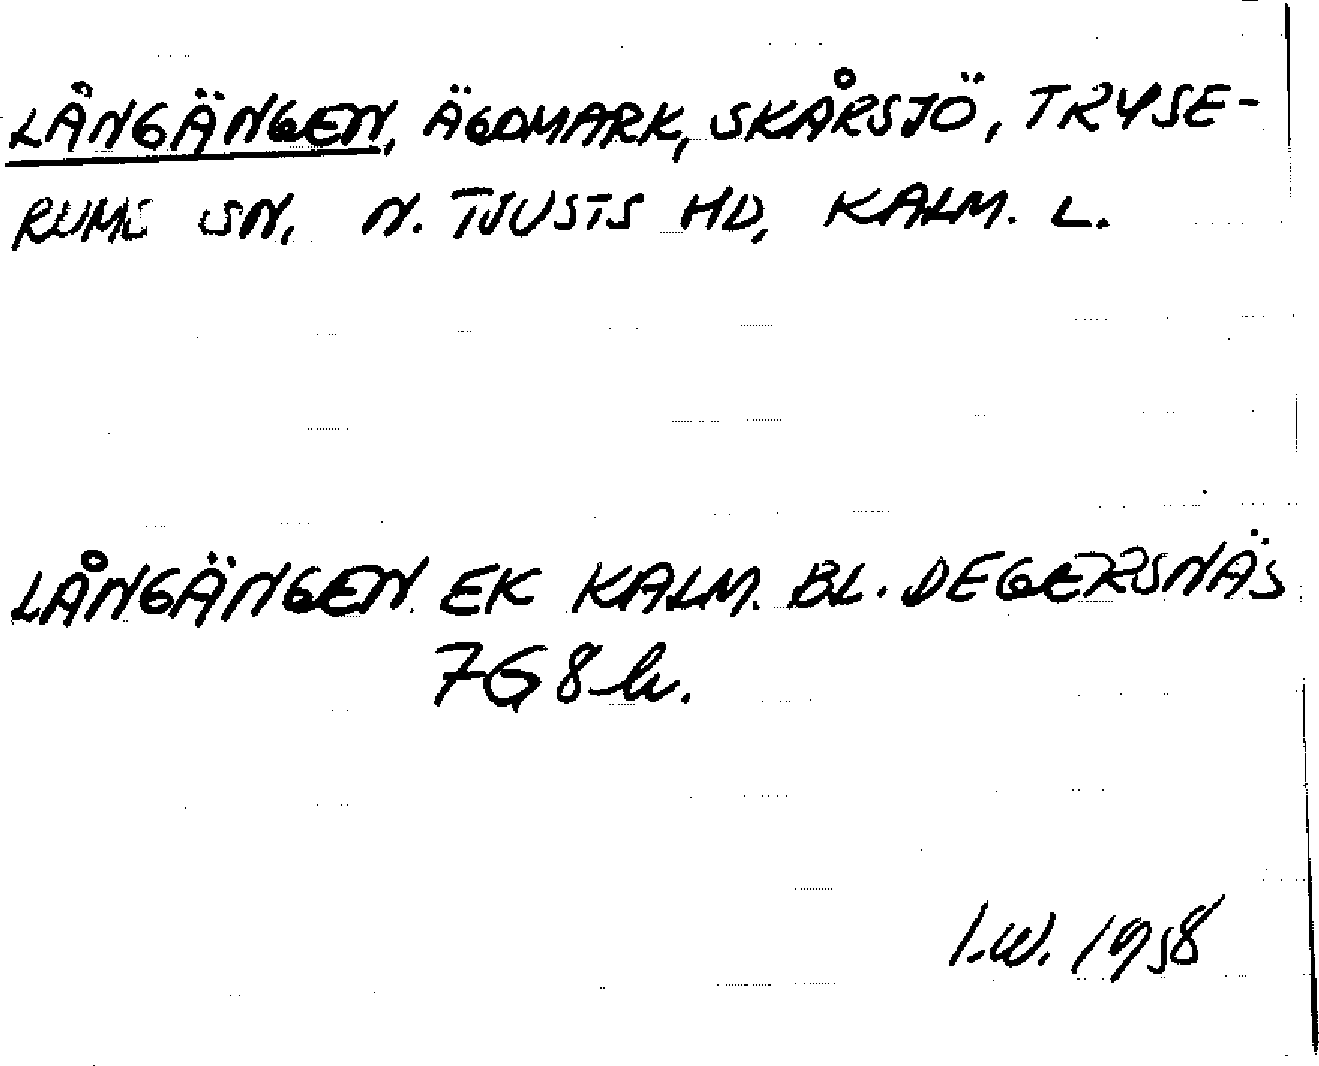 LÅNGÄNGEN, ÄGOMARK, SKÅRSJÖ, TRYSE-
RUMS SN, N. TJUSTS HD, KALM. L.
LÅNGÄNGEN EK KALM. BL. DEGERSNÄS
7G8h.
I.W. 1958